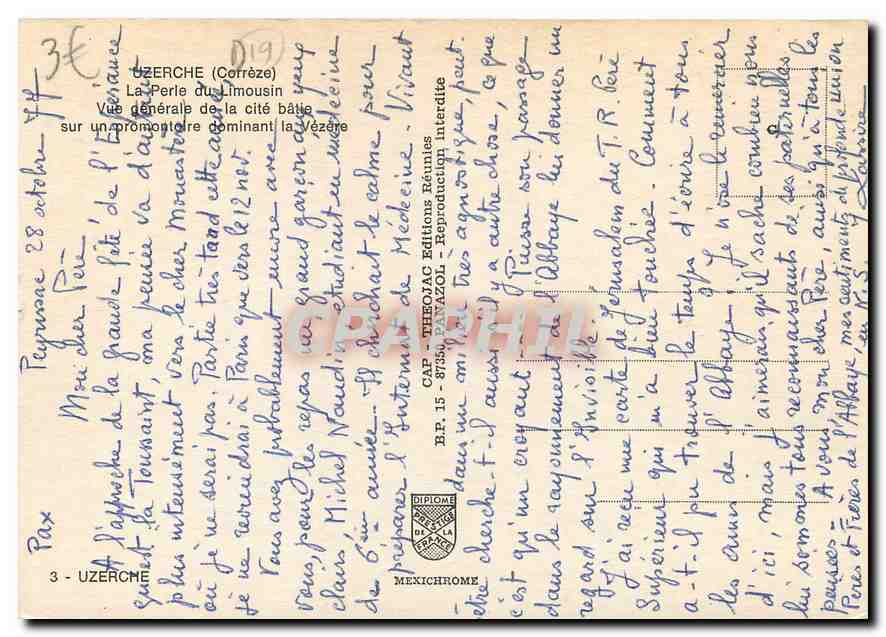 3€
D19
UZERCHE (Corrèze)
La Perle du Limousin
Vue générale de la cité bâtie
sur un promontoire dominant la Vézère
3 - UZERCHE
MEXICHROME
DIPLOME
PRESTIGE
DE LA
FRANCE
CAP - THEOJAC Editions Réunies
B.P. 15 - 87350 PANAZOL - Reproduction interdite
GRAPHIL
Pax Peyrissac 28 octobre 77
Mon cher Père
A l'approche de la grande fête de l'Espérance
qu'est la Toussaint, ma pensée va d'autant
plus intensément vers le cher Monastère
où je ne serai pas. Partie très tard cette année,
je ne reviendrai à Paris que vers le 12 nov.
Vous avez probablement encore avec
vous, pour les repas un grand garçon aux yeux
clairs, Michel Naudin, étudiant en médecine
de 6ème année. Il cherchait le calme pour
préparer l'Internat de Médecine. Vivant
dans un milieu très agnostique, peut-
être cherche-t-il aussi s'il y a autre chose, ce que
c'est qu'un croyant... Puisse son passage
dans le rayonnement de l'Abbaye lui donner un
regard sur l'Invisible.
J'ai reçu une carte de Jérusalem du T.R. Père
Supérieur qui m'a bien touchée. Comment
a-t-il pu trouver le temps d'écrire à tous
les amis de l'Abbaye? Je n'ose le remercier
d'ici, mais j'aimerais qu'il sache combien nous
lui sommes tous reconnaissants de ses paternelles
pensées. A vous mon cher Père, ainsi qu'à tous les
Pères et Frères de l'Abbaye, mes sentiments de profonde union
en N.S.